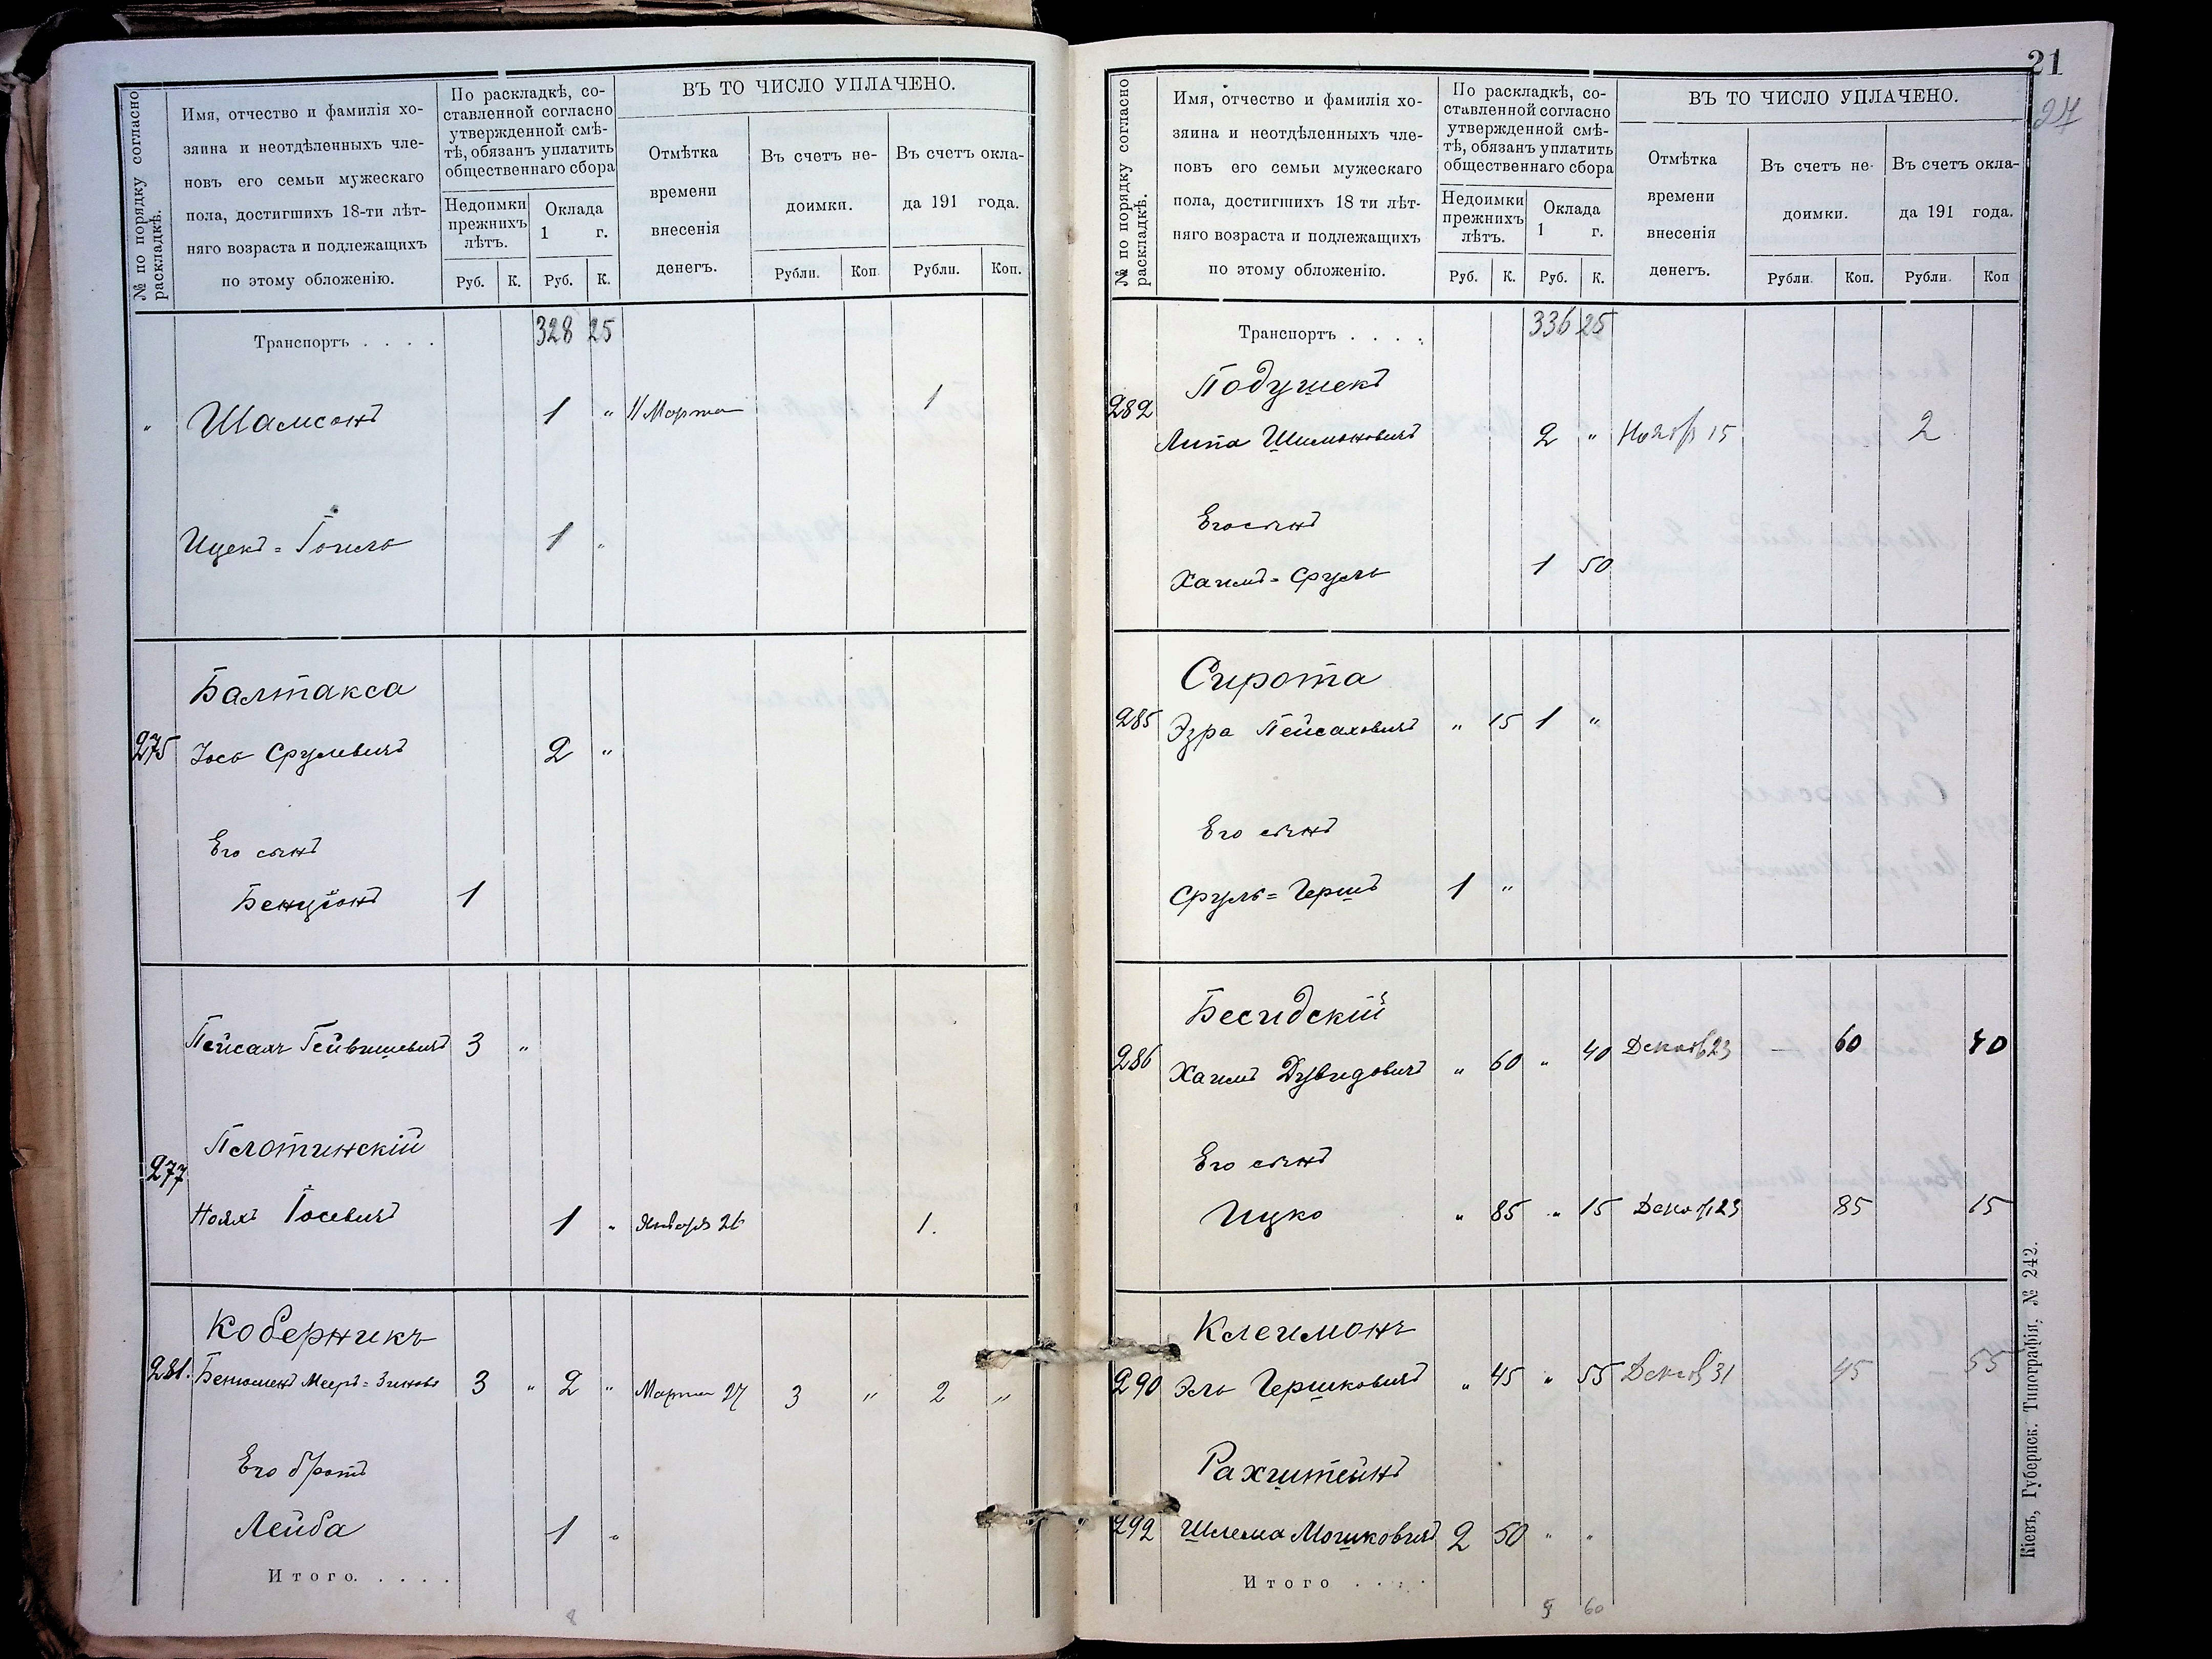 № по порядку согласно раскладкѣ.
Имя, отчество и фамилія хо-
зяина и неотдѣленныхъ чле-
новъ его семьи мужескаго
пола, достигшихъ 18-ти лѣт-
няго возраста и подлежащихъ
по этому обложенію.
По раскладкѣ, со-
ставленной согласно
утвержденной смѣ-
тѣ, обязанъ уплатить
общественнаго сбора
Недоимки прежнихъ лѣтъ.
Оклада 1 г.
ВЪ ТО ЧИСЛО УПЛАЧЕНО.
Отмѣтка времени внесенія денегъ.
Въ счетъ не-доимки.
Въ счетъ окла-да 191 года.
Руб. К. Руб. К. Рубли. Коп. Рубли. Коп.
Транспортъ . . . . 328 25
" Шамсонъ 1 " 11 Марта 1
Ицекъ=Гоиль 1 "
Балтакса
275 Іось Срулевичъ 2 "
Его сынъ
Бенціонъ 1
Пейсахъ Гейвишевичъ 3 "
Плотинскій
277
Нояхъ Іосевичъ 1 " Января 26 1.
Коберникъ
281. Бенюменъ Мееръ= 3 " 2 " Марта 27 3 " 2 "
Его братъ
Лейба 1 "
Итого. . . . .
8
21
27
№ по порядку согласно раскладкѣ.
Имя, отчество и фамилія хо-
зяина и неотдѣленныхъ чле-
новъ его семьи мужескаго
пола, достигшихъ 18 ти лѣт-
няго возраста и подлежащихъ
по этому обложенію.
По раскладкѣ, со-
ставленной согласно
утвержденной смѣ-
тѣ, обязанъ уплатить
общественнаго сбора
Недоимки прежнихъ лѣтъ.
Оклада 1 г.
ВЪ ТО ЧИСЛО УПЛАЧЕНО.
Отмѣтка времени внесенія денегъ.
Въ счетъ не-доимки.
Въ счетъ окла-да 191 года.
Руб. К. Руб. К. Рубли. Коп. Рубли. Коп
Транспортъ . . . . 336 25
Подушекъ
282
Липа Шимоновичъ 2 " Ноябр 15 2
Его сынъ
Хаимъ=Сруль 1 50
Сирота
285 Эзра Пейсаховичъ " 15 1 "
Его сынъ
Сруль=Гершъ 1 "
Бесидскій
286 Хаимъ Дувидовичъ " 60 " 40 Декаб 23 — 60 40
Его сынъ
Ицко " 85 " 15 Декаб 23 85 15
Клеимонъ
290 Эль Гершковичъ " 45 " 55 Декаб 31 45 55
Рахштейнъ
292 Шлема Мошковичъ 2 50 " "
Итого . . . .
5 60
Кіевъ, Губернск. Типографія, № 242.